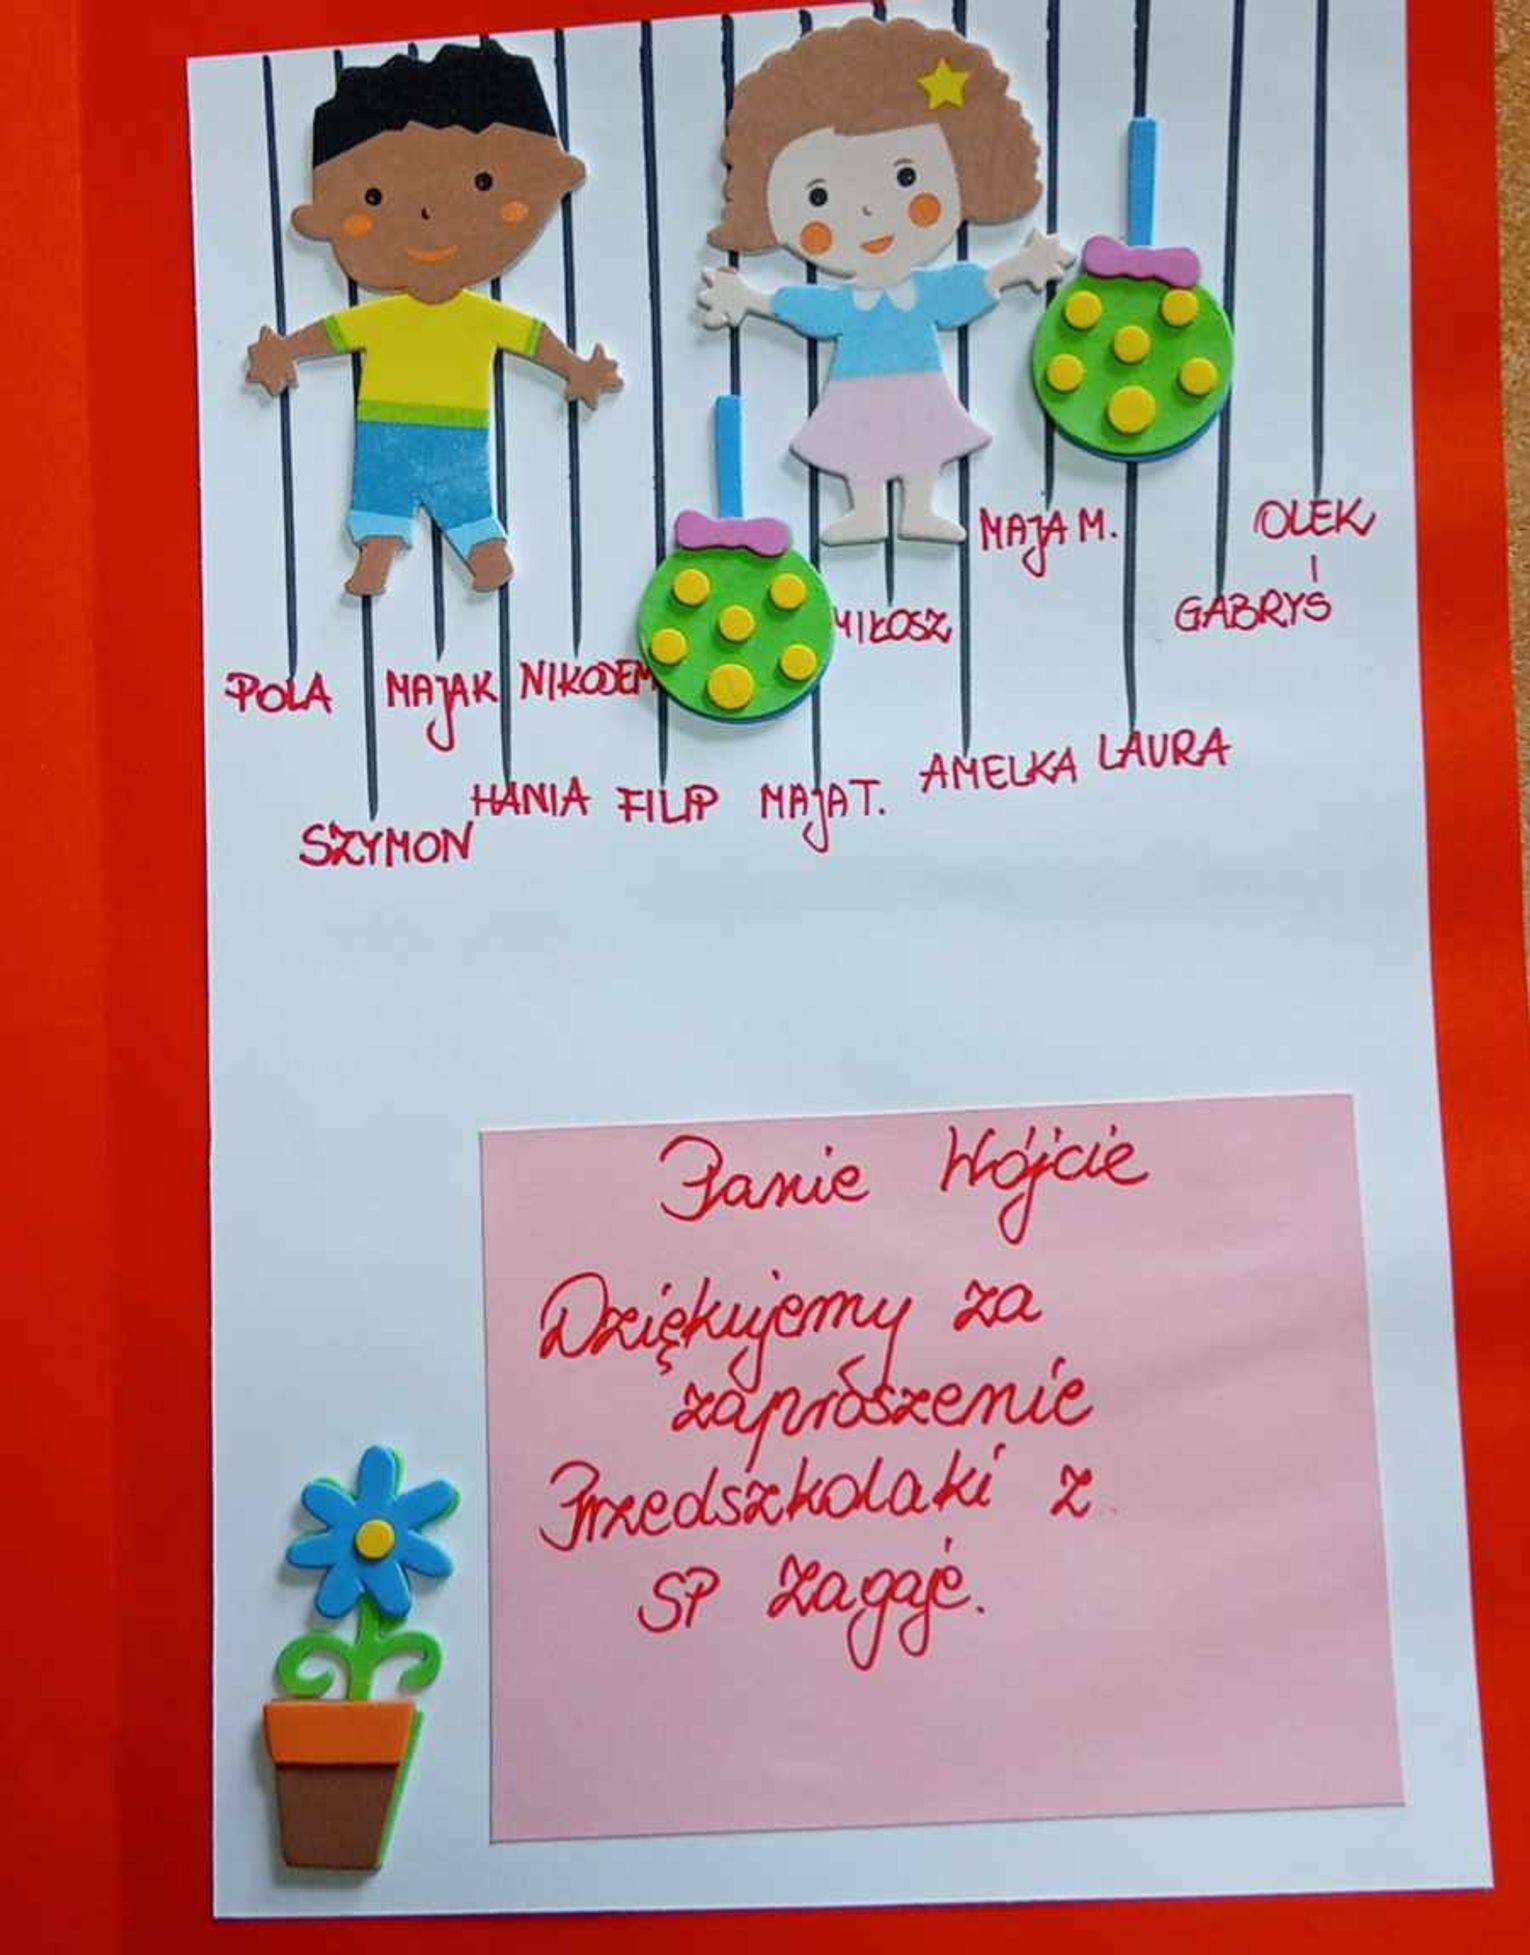 POLA
SZYMON
MAJA K
HANIA
NIKODEM
FILIP
MAJA T.
MIŁOSZ
AMELKA
MAJA M.
LAURA
GABRYŚ
I
OLEK
Panie Wójcie
Dziękujemy za
zaproszenie
Przedszkolaki z
SP Zagaje.